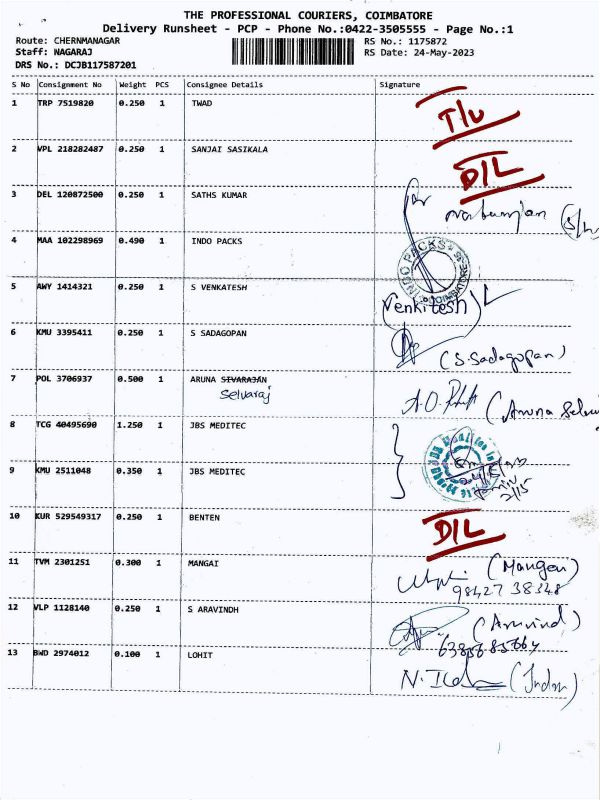 THE PROFESSIONAL COURIERS, COIMBATORE
Delivery Runsheet - PCP - Phone No.:0422-3505555 - Page No.:1
Route: CHERNMANAGAR RS No.: 1175872
Staff: NAGARAJ RS Date: 24-May-2023
DRS No.: DCJB117587201
S No Consignment No Weight PCS Consignee Details Signature
1 TRP 7519820 0.250 1 TWAD T/U
2 VPL 218282487 0.250 1 SANJAI SASIKALA D/L
3 DEL 120872500 0.250 1 SATHS KUMAR
4 MAA 102298969 0.490 1 INDO PACKS INDO PACKS COIMBATORE
5 AWY 1414321 0.250 1 S VENKATESH Venkitesh
6 KMU 3395411 0.250 1 S SADAGOPAN (S.Sadagopan)
7 POL 3706937 0.500 1 ARUNA SIVARAJAN (Aruna
Selvaraj
8 TCG 40495690 1.250 1 JBS MEDITEC
9 KMU 2511048 0.350 1 JBS MEDITEC
10 KUR 529549317 0.250 1 BENTEN D/L
11 TVM 2301251 0.300 1 MANGAI
98427 38348
12 VLP 1128140 0.250 1 S ARAVINDH (Arvind)
13 BWD 2974012 0.100 1 LOHIT